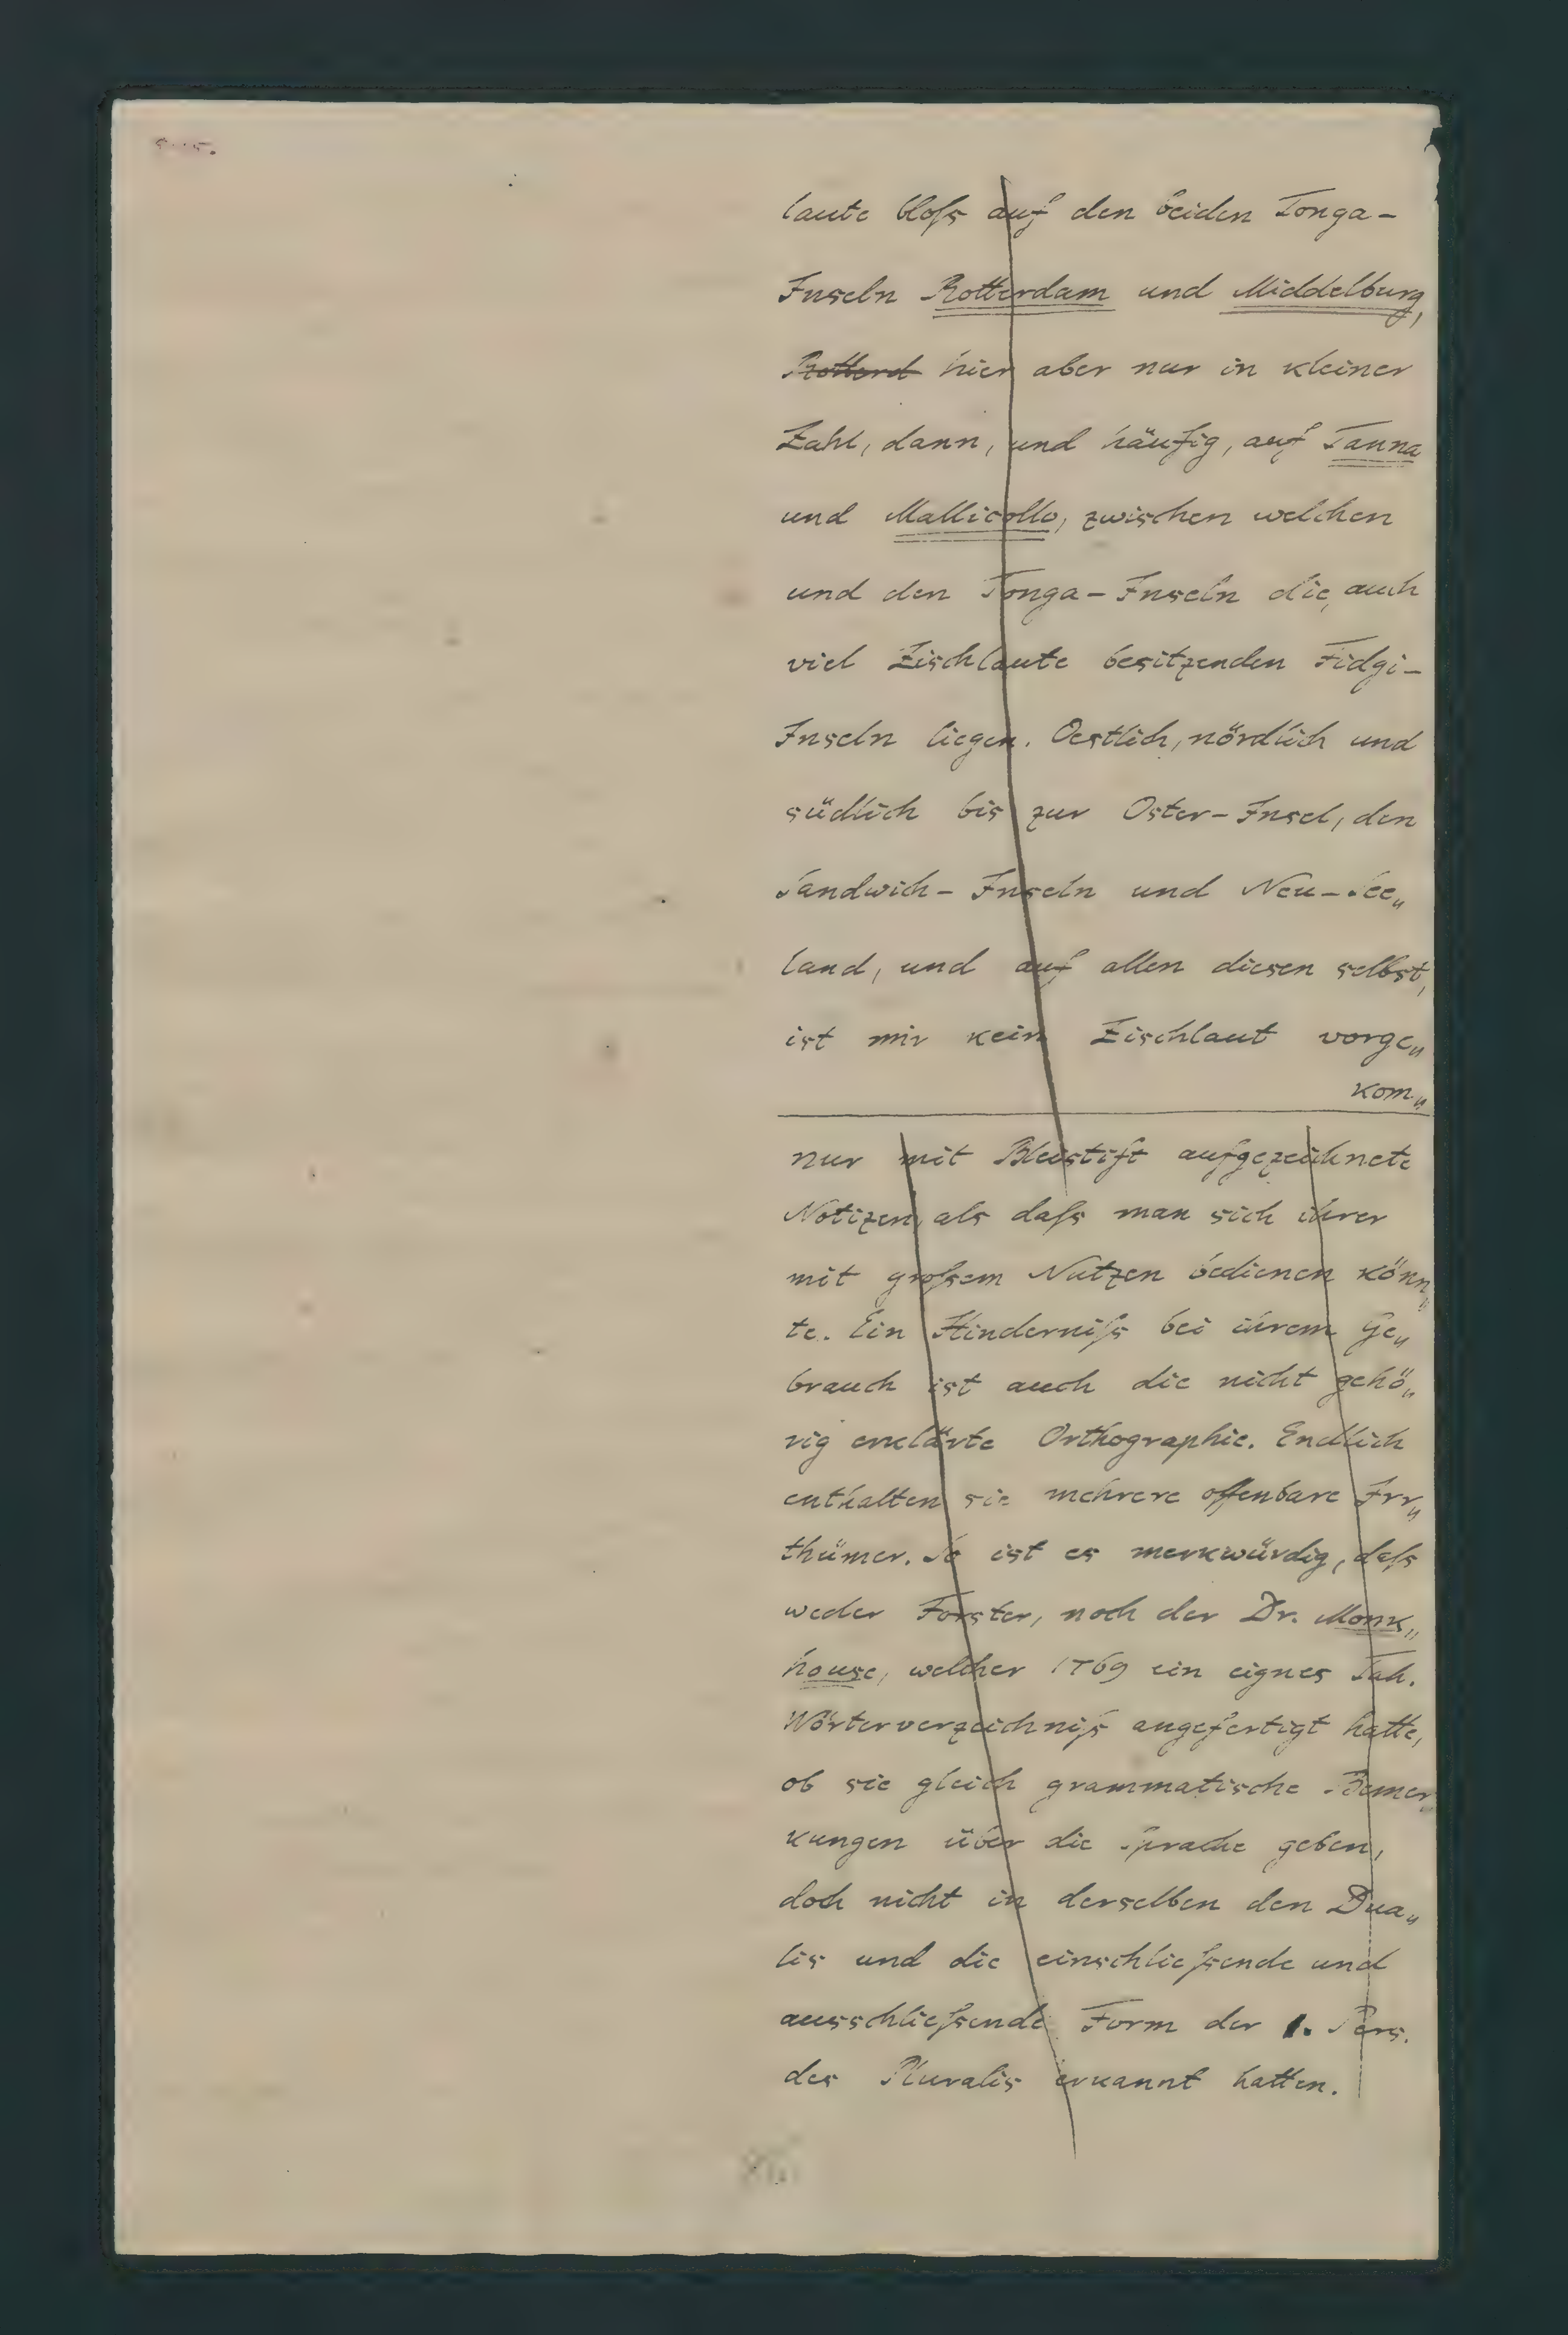 laute bloſs auf den beiden Tonga-
Inseln Rotterdam und Middelburg,
Rotterd hier aber nur in kleiner
Zahl, dann, und häufig, auf Tanna
und Mallicollo, zwischen welchen
und den Tonga-Inseln die, auch
viel Zischlaute besitzenden Fidgi-
Inseln liegen. Oestlich, nördlich und
südlich bis zur Oster-Insel, den
Sandwich-Inseln und Neu-See„
land, und auf allen diesen selbst,
ist mir kein Zischlaut vorge„
kom„
nur mit Bleistift aufgezeichnete
Notizen, als daſs man sich ihrer
mit groſsem Nutzen bedienen könn„
te. Ein Hinderniſs bei ihrem Ge„
brauch ist auch die nicht gehö„
rig erklärte Orthographie. Endlich
enthalten sie mehrere offenbare Irr„
thümer. So ist es merkwürdig, daſs
weder Forster, noch der Dr. Monk„
house, welcher 1769 ein eignes Tah.
Wörterverzeichniſs angefertigt hatte,
ob sie gleich grammatische Bemer„
kungen über die Sprache geben,
doch nicht in derselben den Dua„
lis und die einschlieſsende und
ausschlieſsende Form der 1. Pers.
des Pluralis erkannt hatten.